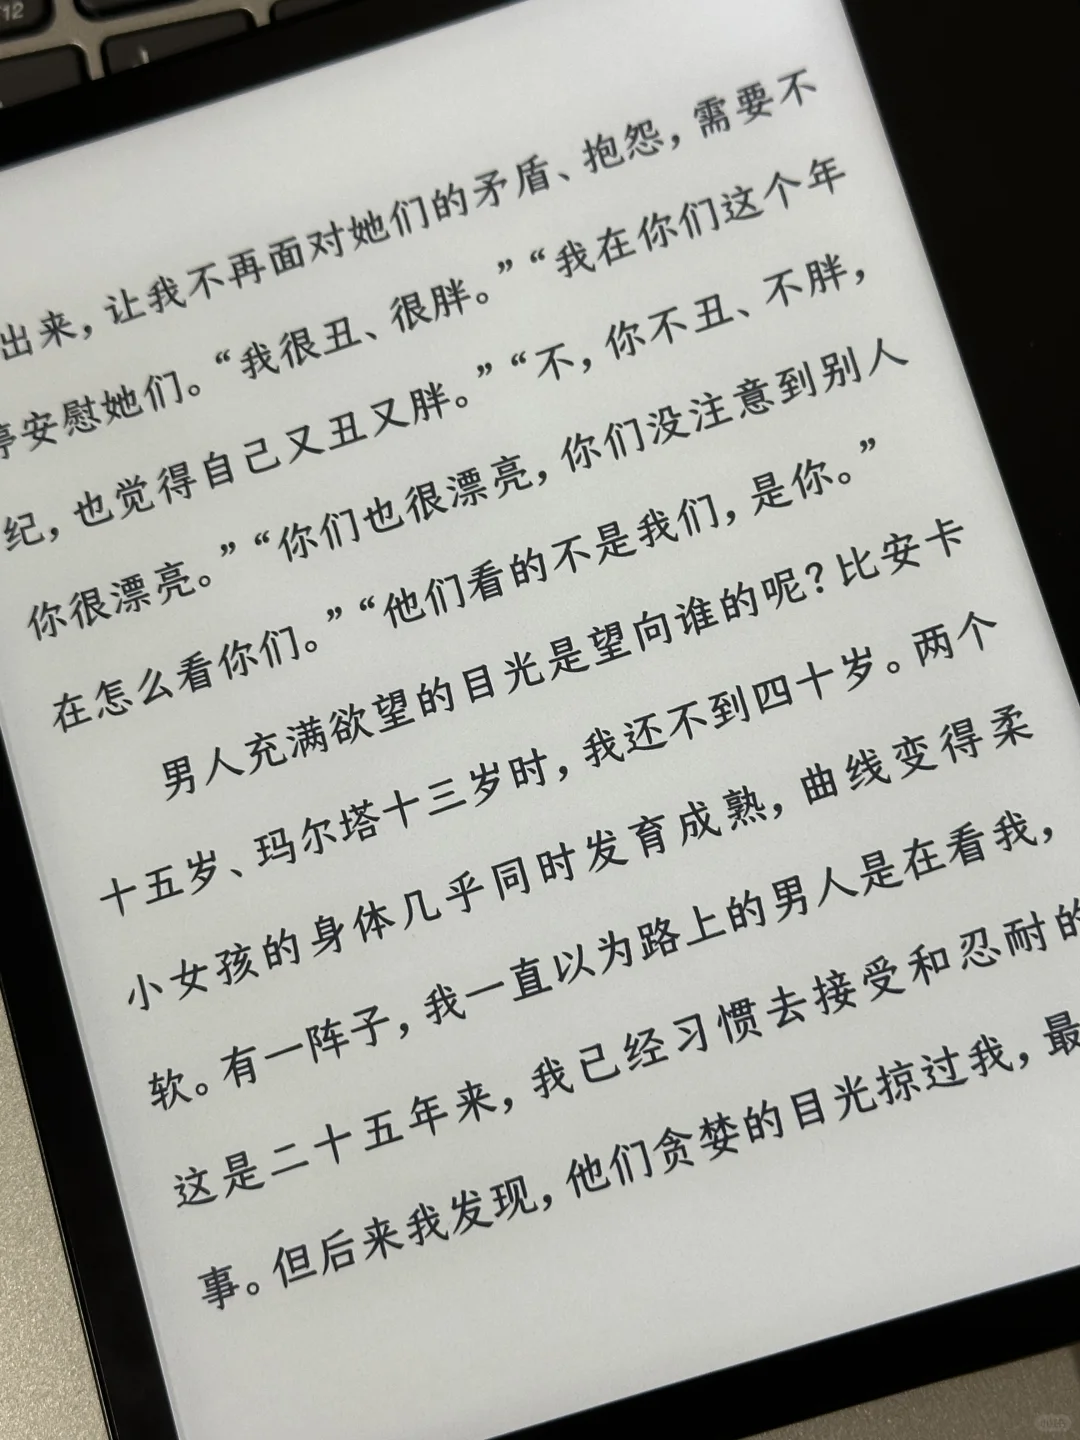 F12
出来，让我不再面对她们的矛盾、抱怨，需要不
停安慰她们。“我很丑、很胖。”“我在你们这个年
纪，也觉得自己又丑又胖。”“不，你不丑、不胖，
你很漂亮。”“你们也很漂亮，你们没注意到别人
在怎么看你们。”“他们看的不是我们，是你。”
男人充满欲望的目光是望向谁的呢？比安卡
十五岁、玛尔塔十三岁时，我还不到四十岁。两个
小女孩的身体几乎同时发育成熟，曲线变得柔
软。有一阵子，我一直以为路上的男人是在看我，
这是二十五年来，我已经习惯去接受和忍耐的
事。但后来我发现，他们贪婪的目光掠过我，最